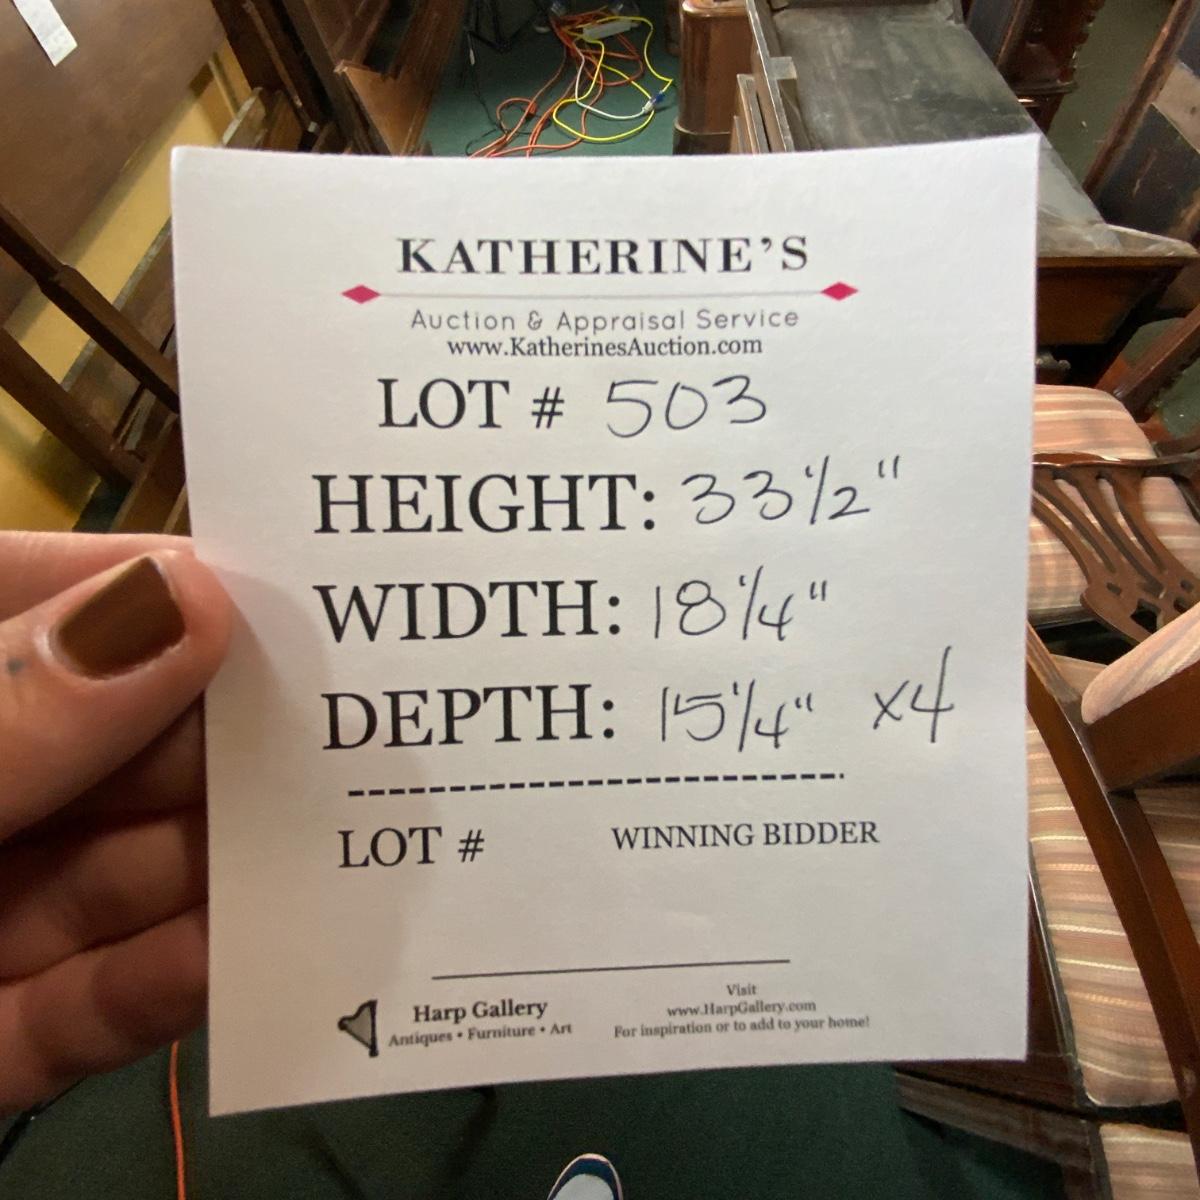 KATHERINE'S
Auction & Appraisal Service
www.KatherinesAuction.com
LOT # 503
HEIGHT: 33 1/2"
WIDTH: 18 1/4"
DEPTH: 15 1/4" x4
LOT # WINNING BIDDER
Harp Gallery
Antiques • Furniture • Art
Visit
www.HarpGallery.com
For inspiration or to add to your home!